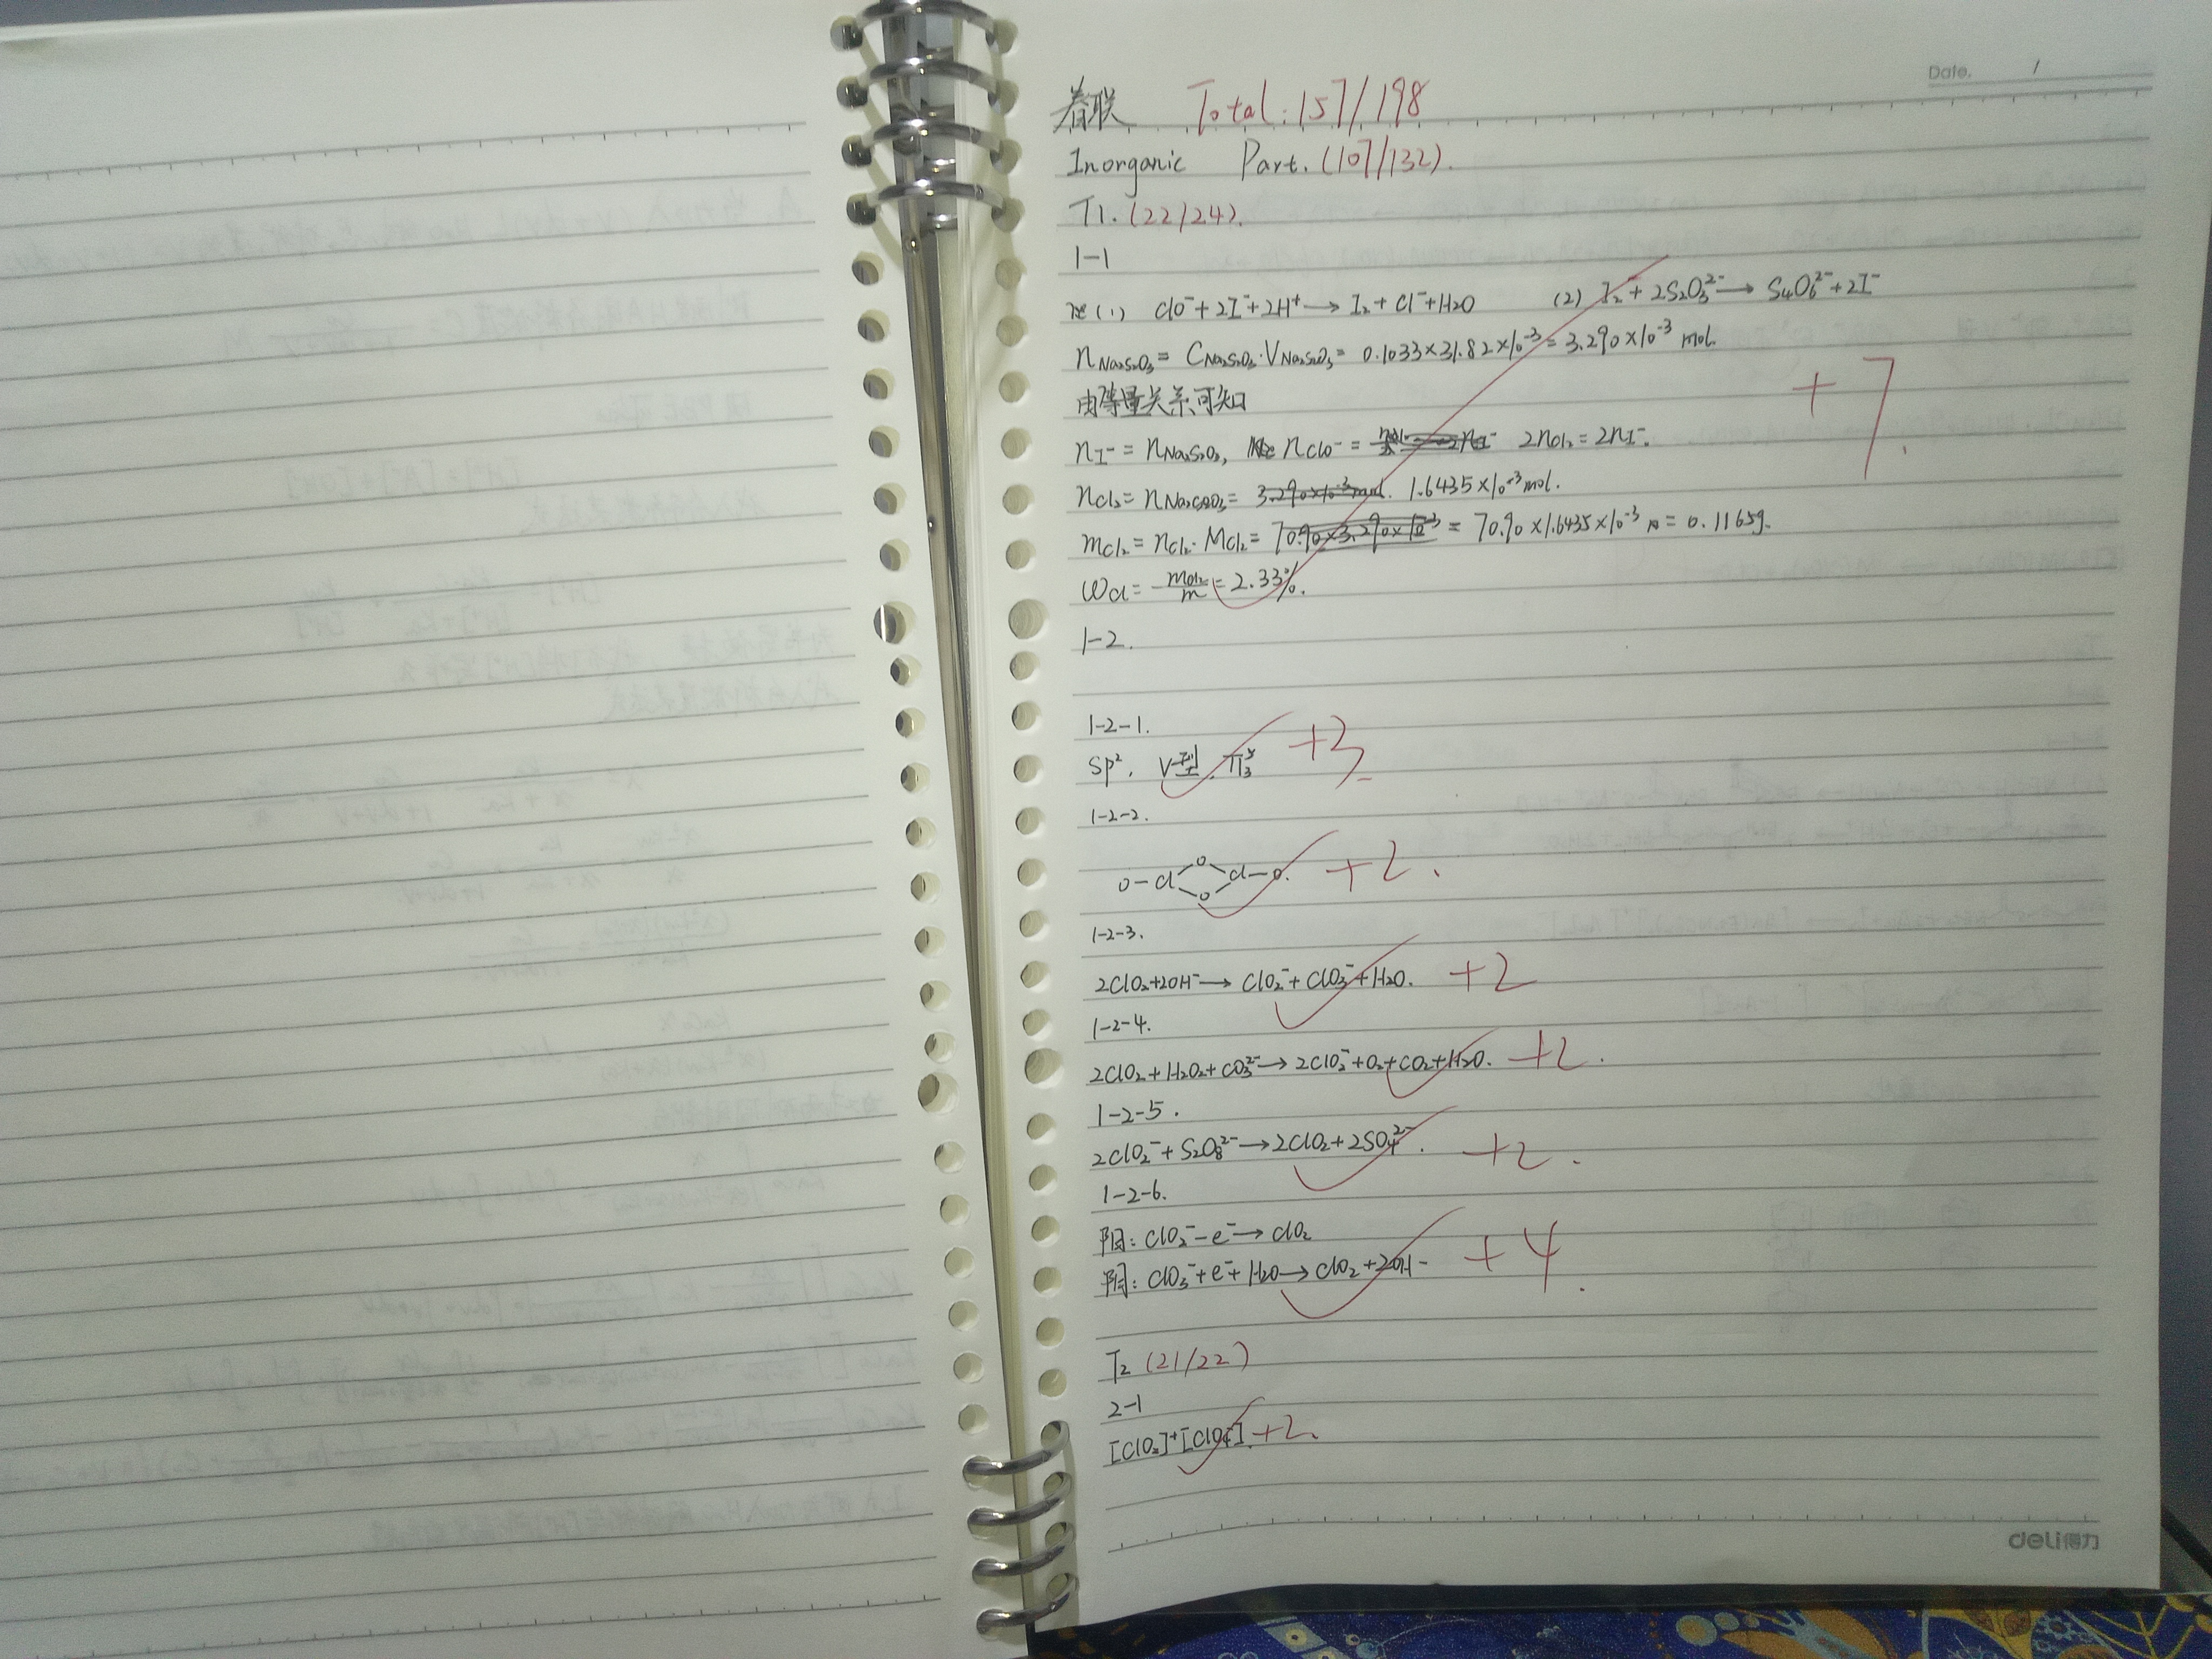 Date. /
春联 Total: 157/198
Inorganic Part. (107/132).
T1. (22/24).
1-1
(1) ClO⁻+2I⁻+2H⁺→I₂+Cl⁻+H₂O (2) I₂+2S₂O₃²⁻→S₄O₆²⁻+2I⁻
nNa₂S₂O₃=CNa₂S₂O₃·VNa₂S₂O₃=0.1033×31.82×10⁻³=3.290×10⁻³ mol.
由等量关系可知 +7.
nI⁻=nNa₂S₂O₃, nClO⁻= 2nCl₂=2nI⁻.
nCl₂=nNa₂S₂O₃= 3.290×10⁻³mol. 1.6435×10⁻³mol.
mCl₂=nCl₂·MCl₂=70.90×3.290×10⁻³=70.90×1.6435×10⁻³=0.1165g.
ωCl=mCl₂/m=2.33%.
1-2.
1-2-1.
sp². V型. Π₃⁵ +3.
1-2-2.
O-Cl O O Cl-O. +2.
1-2-3.
2ClO₂+2OH⁻→ClO₂⁻+ClO₃⁻+H₂O. +2
1-2-4.
2ClO₂+H₂O₂+CO₃²⁻→2ClO₂⁻+O₂+CO₂+H₂O. +2.
1-2-5.
2ClO₂⁻+S₂O₈²⁻→2ClO₂+2SO₄²⁻. +2.
1-2-6.
阳: ClO₂⁻-e⁻→ClO₂
阴: ClO₃⁻+e⁻+H₂O→ClO₂+2OH⁻ +4.
T2 (21/22)
2-1
[ClO₂]⁺[ClO₄⁻]. +2.
deli得力